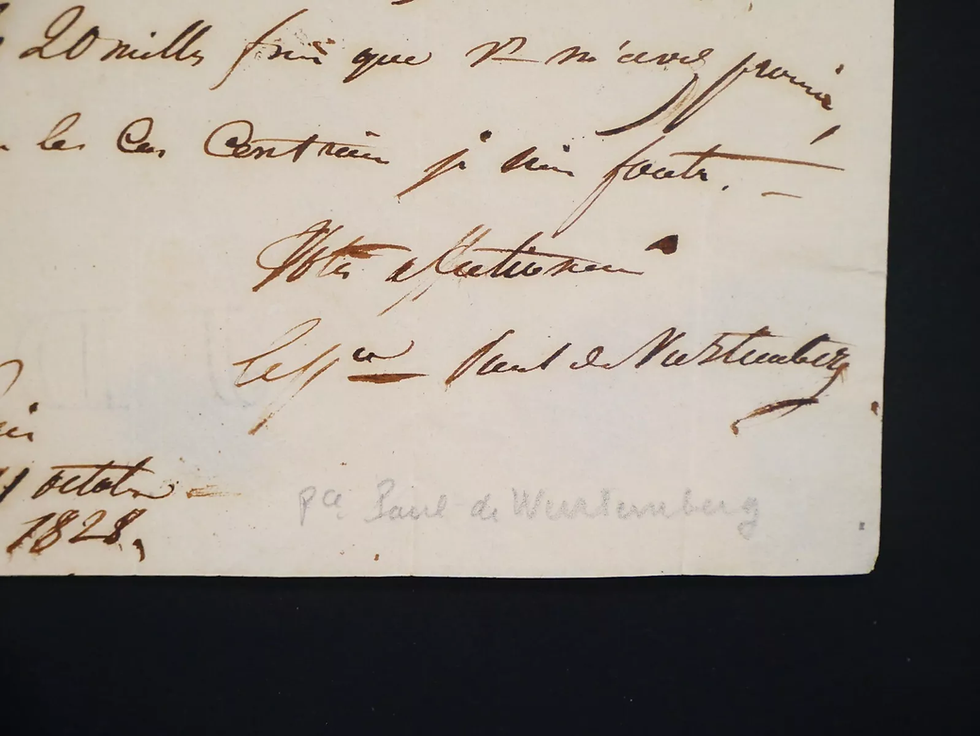 20 mille frcs que vs m'avez promis,
les cas contraire je m'en fouts. —
Votre affectionné
le pce Paul de Wurtemberg
octobre
1828.
pce Paul de Wurtemberg